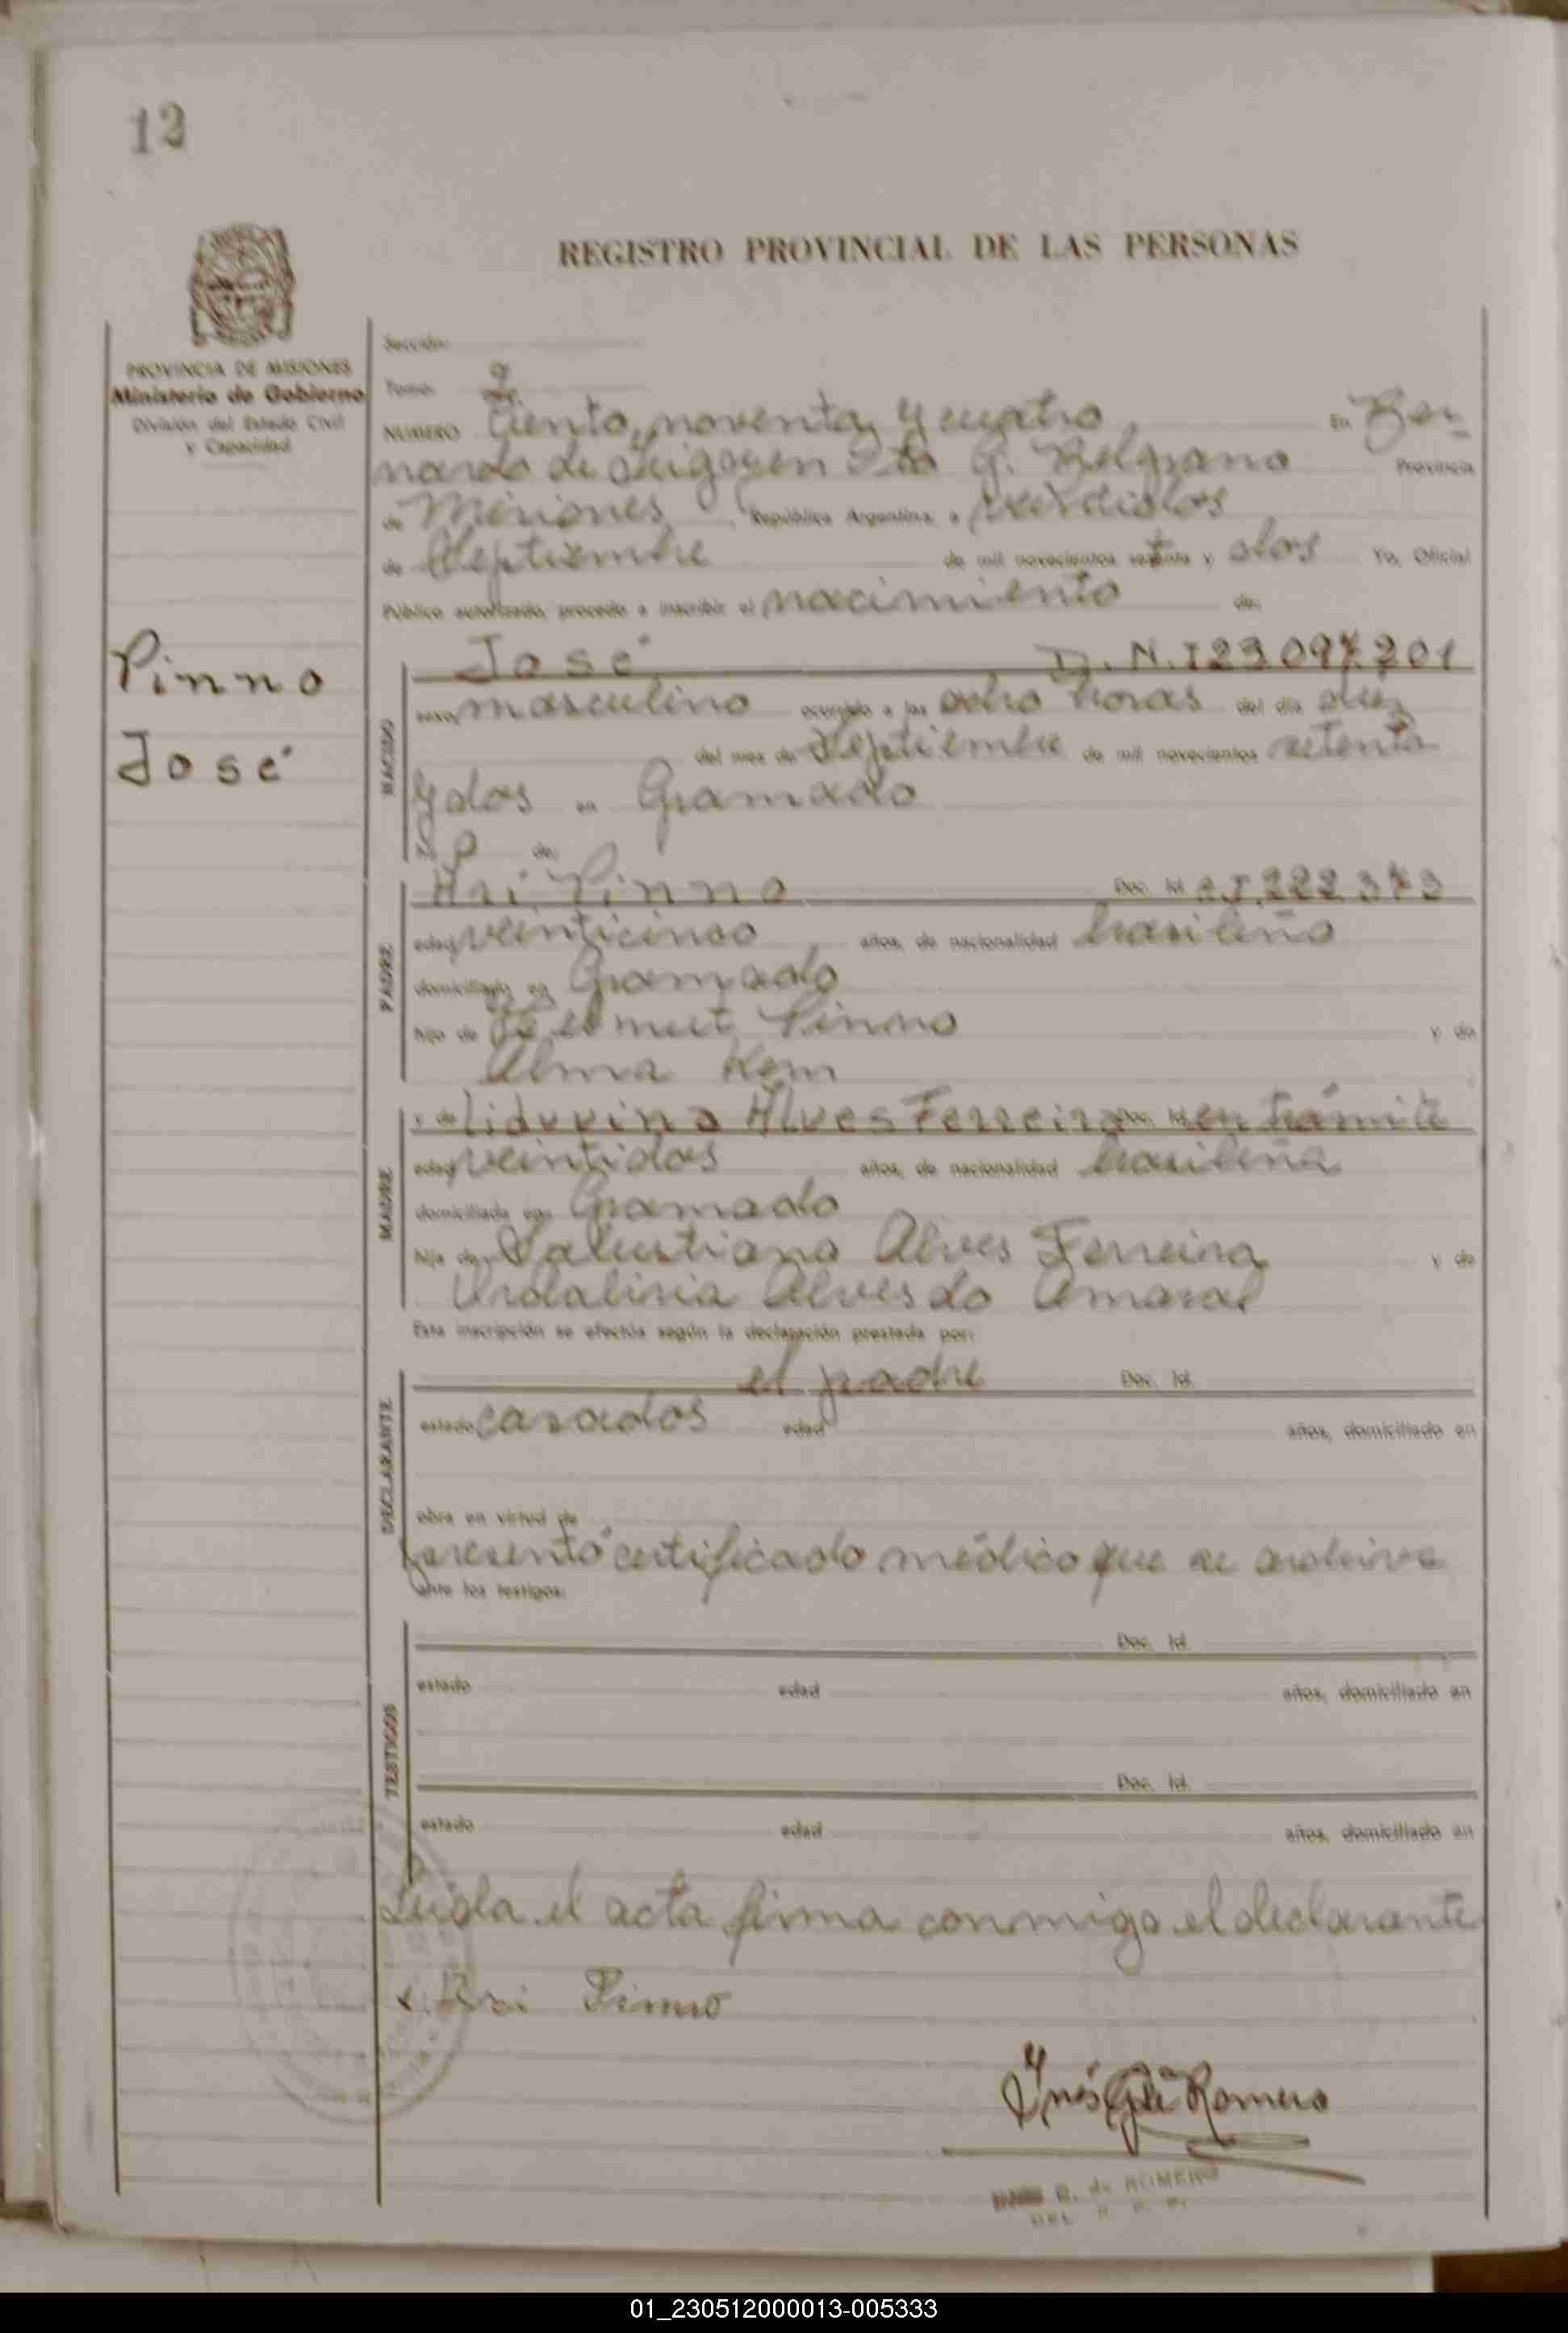 12
REGISTRO PROVINCIAL DE LAS PERSONAS
PROVINCIA DE MISIONES
Ministerio de Gobierno
División del Estado Civil
y Capacidad
Sección:
Tomo: 2
NUMERO Ciento noventa y cuatro, En Ber-
nardo de Irigoyen Dto G. Belgrano Provincia
de Misiones, República Argentina, a veintidos
de Septiembre de mil novecientos setenta y dos Yo, Oficial
Público autorizado, procedo a inscribir el nacimiento de:
Pinno
José
NACIDO
José D.N.I 23.097.201
sexo masculino ocurrido a las ocho horas del día diez
del mes de Septiembre de mil novecientos setenta
y dos en Gramado
de:
PADRE
Ari Pinno Doc. Id. C.I. 222.373
edad veinticinco años, de nacionalidad brasileño
domiciliado en Gramado
hijo de Helmut Pinno y de
Alma Kem
MADRE
y de Liduvina Alves Ferreira Doc. Id. en trámite
edad veintidos años, de nacionalidad brasileña
domiciliada en Gramado
hija de Salustiano Alves Ferreira y de
Ordalina Alves do Amaral
Esta inscripción se efectúa según la declaración prestada por:
DECLARANTE
el padre Doc. Id.
estado casados edad años, domiciliado en
obra en virtud de
presentó certificado médico que se archiva
ante los testigos:
TESTIGOS
Doc. Id.
estado edad años, domiciliado en
Doc. Id.
estado edad años, domiciliado en
Leida el acta firma conmigo el declarante
x Ari Pinno
Inés G. de Romero
INES G. de ROMERO
DEL R. P.
01_230512000013-005333